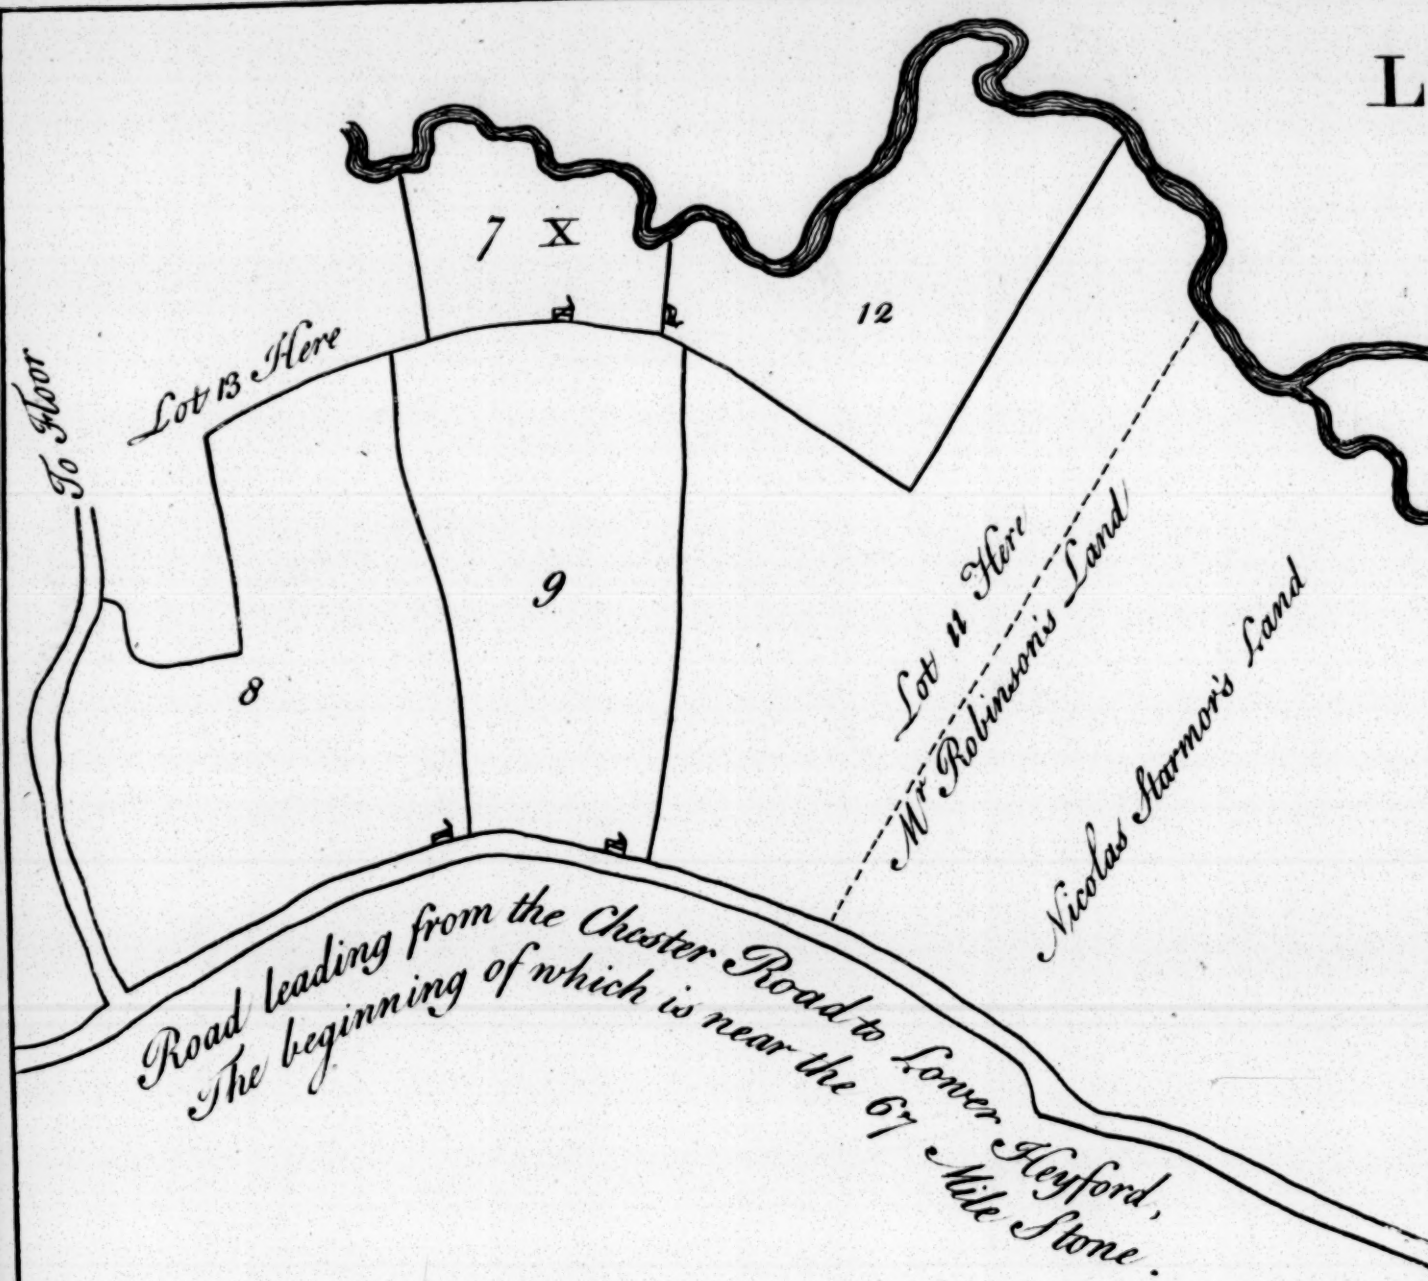 L
7 X
12
Lot 13 Here
To Floor
9
8
Lot 11 Here
Mr Robinson's Land
Nicolas Starmor's Land
Road leading from the Chester Road to Lower Heyford,
The beginning of which is near the 67 Mile Stone.